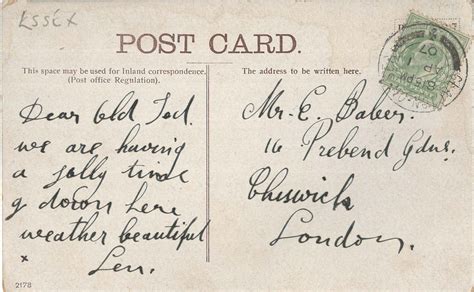 ESSEX
POST CARD.
This space may be used for Inland correspondence.
(Post office Regulation).
The address to be written here.
Dear Old Ted.
we are having
a jolly time
g down here
weather beautiful
Len.
x
Mr. E. Baber.
16 Prebend Gdns.
Chiswick
London.
2178